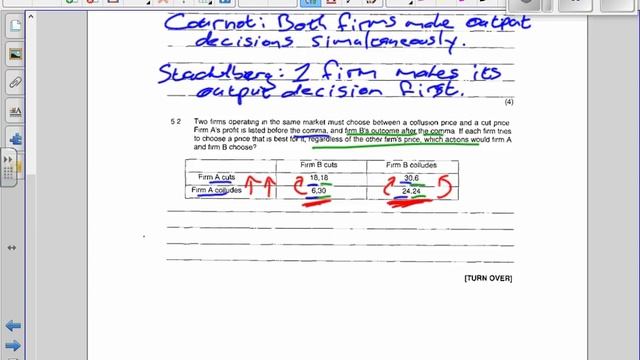 Cournot: Both firms make output
decisions simaltaneously.
Stackelberg: 1 firm makes its
output decision first.
(4)
5.2 Two firms operating in the same market must choose between a collusion price and a cut price.
Firm A's profit is listed before the comma, and firm B's outcome after the comma. If each firm tries
to choose a price that is best for it, regardless of the other firm's price, which actions would firm A
and firm B choose?
Firm B cuts Firm B colludes
Firm A cuts 18,18 30,6
Firm A colludes 6,30 24,24
[TURN OVER]